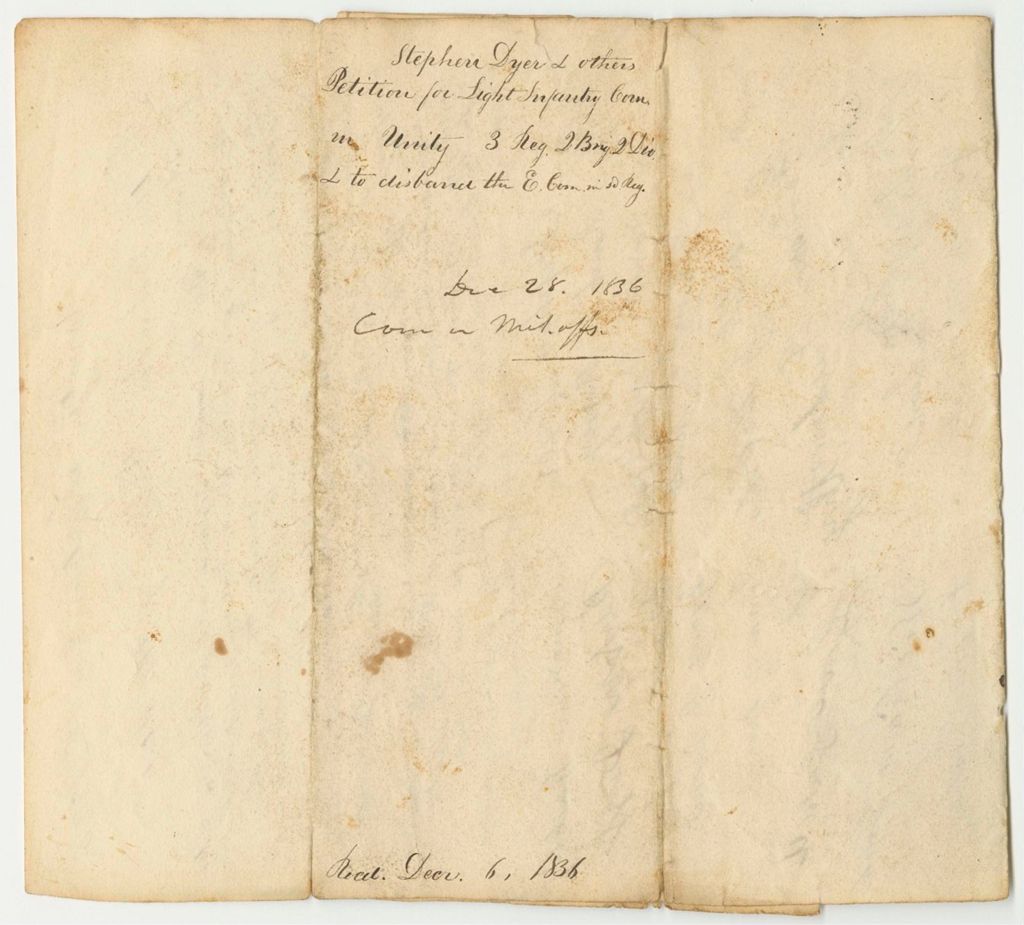 Stephen Dyer & others
Petition for Light Infantry Com.
in Unity 3 Reg. 2 Brig. 2 Div.
& to disband the E. Com. in sd Reg.
Dec 28. 1836
Com on Mil. affs.
Recd. Decr. 6, 1836